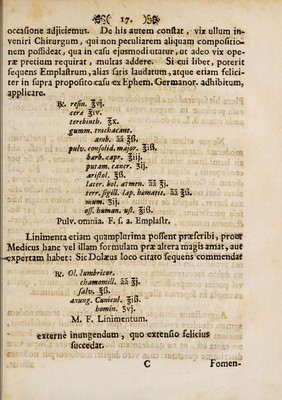 17.
occasione adjiciemus. De his autem constat, vix ullum in-
veniri Chirurgum, qui non peculiarem aliquam compositio-
nem possideat, qua in casu ejusmodi utatur, ut adeo vix ope-
ræ pretium requirat, multas addere. Si cui libet, poterit
sequens Emplastrum, alias satis laudatum, atque etiam felici-
ter in supra proposito casu ex Ephem. Germanor. adhibitum,
applicare.
℞. resin. ℥vj.
ceræ ℥iv.
terebinth. ℥x.
gumm. trachacant.
arab. āā ℥ß.
pulv. consolid. major. ℥iß.
barb. capr. ℥iij.
putam. cancr. ℥ij.
aristol. ℥ß.
later. bol. armen. āā ℥j.
terr. sigill. lap. hæmatit. āā ℥ß.
mum. ℥ij.
oss. human. ust. ℥iß.
Pulv. omnia. F. s. a. Emplastr.
Linimenta etiam quamplurima possent præscribi, prout
Medicus hanc vel illam formulam præ altera magis amat, aut
expertam habet: Sic Dolæus loco citato sequens commendat
℞. Ol. lumbricor.
chamomill. āā ℥j.
salv. ℥ß.
axung. Cunicul. ℥iß.
homin. ℥vj.
M. F. Linimentum.
externè inungendum, quo extensio felicius
succedat.
C Fomen-